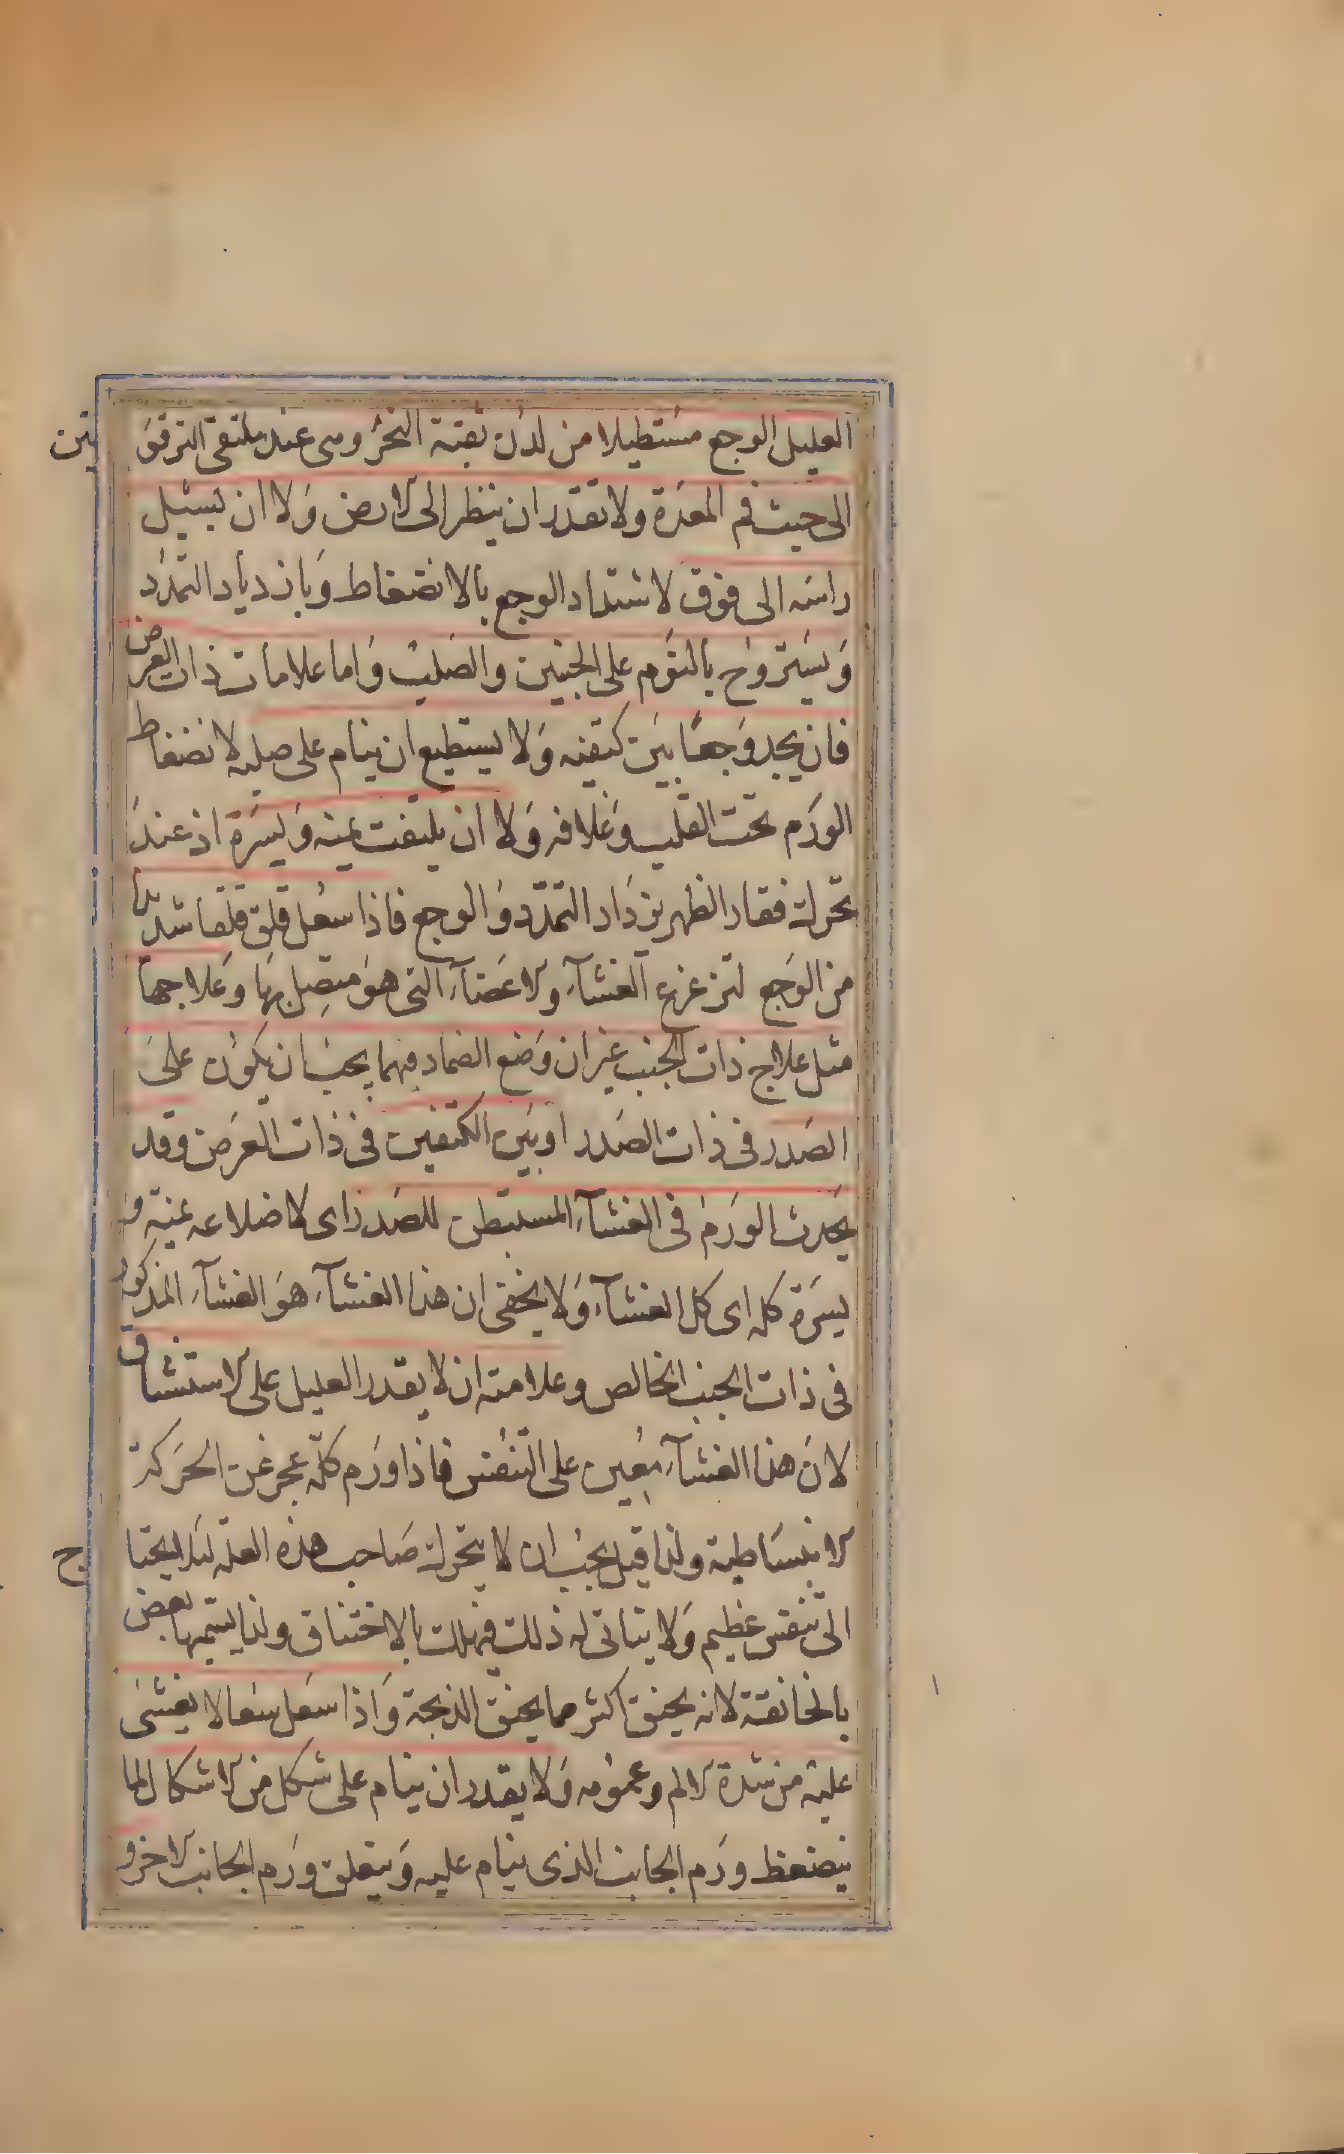 العليل الوجع مستطيلا من لدن ثقبة النحر وهى عند ملتقى الترقوتين
الى حيث فم المعدة ولا تقدر ان ينظر الى الارض وَلا ان يسئيل
راسه الى فوق لاشتداد الوجع بالانضغاط وَبازدياد التمدّد
وَيستروح بالنوم على الجنبين والصلب وَاما علامات ذات العرض
فان يجد وَجعًا بين كتفيه وَلا يستطيع ان ينام على صلبه لانضغاط
الورَم تحت القلب وَغلافه وَلا ان يلتفت يمينه وَيسرَة اذ عندَ
تحرك فقار الظهر يزدَاد التمدّد وَالوجع فاذا سعل قلق قلقا شديدا
من الوَجع لتزعزع الغشآء والاعضآء التى هوَ متصل بهَا وَعلاجها
مثل علاج ذات الجنب غير ان وَضع الضماد فيهما يجب ان يكون على
الصَدر فى ذات الصَدر او بَين الكتفين فى ذات العَرض وقد
يحدث الورَم فى الغشآء المستبطن للصَدر اى لاضلاعه يمنيه و
يسرَة كله اى كل الغشآء وَلا يخفى ان هذا الغشآء هوَ الغشآء المذكور
فى ذات الجنب الخالص وعلامته ان لا يقدر العليل على الاستنشاق
لانَ هذا الغشآء معين على التنفس فاذا ورَم كلّه عجز عن الحرَكة
الانبسَاطية ولذا قيل يجب ان لا يتحرك صَاحب هذه العلة لئلا يحتاج
الى تنفس عظيم وَلا يتاتى له ذلك فيهلك بالاختناق ولذا يسميها بعض
بالخانقة لانه يخنق اكثر مما يخنق الذبحة وَاذا سعل سعالا يغشى
عليه من شدة الالم وعمومه وَلا يقدر ان ينام على شكل من الاشكال لما
ينضغط ورَم الجانب الذى ينام عليه وَيتعلق ورَم الجانب الاخر و